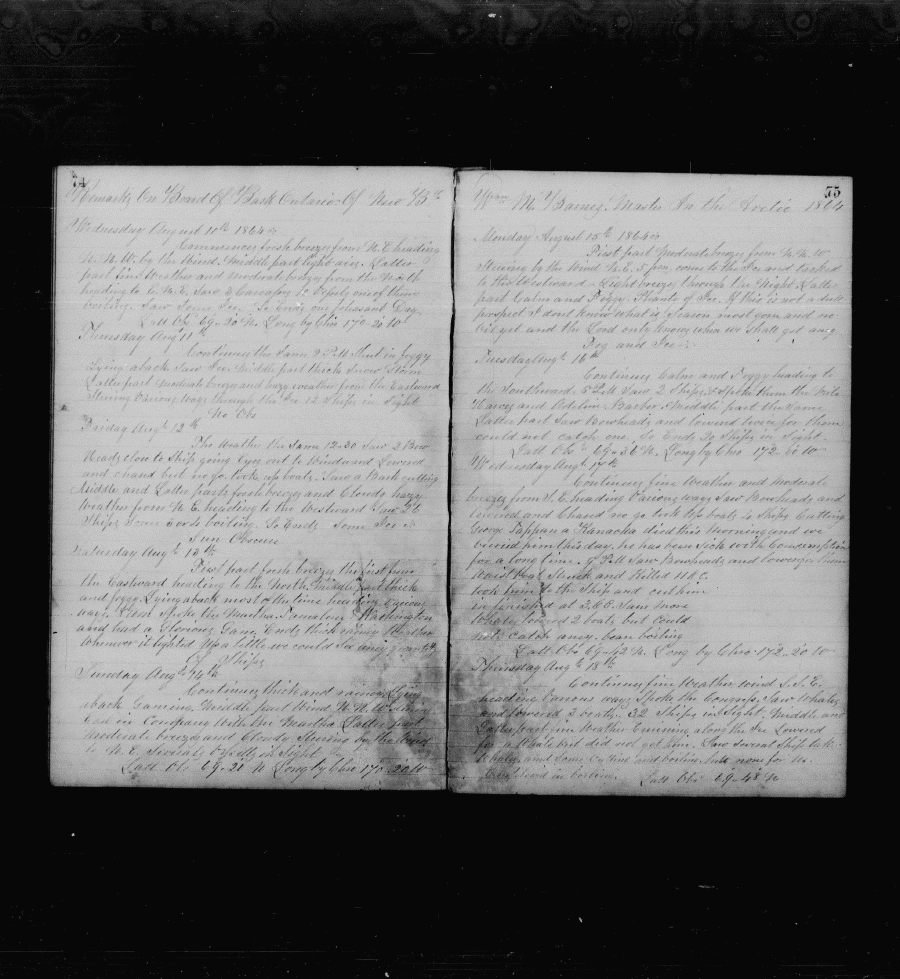 74
Remarks On Board Of Bark Ontario Of New B
Wednesday August 10th 1864
Commences fresh breeze from N.E heading
N.N.W. by the Wind. Middle part light airs. Latter
part fine Weather and moderat breeze from the North
heading to E.N.E. Saw 2 Carcasses 12 Ships one of them
boiling. Saw Some Ice. So Ends an pleasant Day
Latt Obs 69-20 N Long by Chro 170-20 W
Thursday Augt 11th
Continues the Same 2 P.M Shut in foggy
Lying aback Saw Ice Middle part thick Snow Storm
Latter part moderate breeze and hazy weather from the Eastward
Steering Various ways through the Ice 12 Ships in Sight
No Obs
Friday Augt 12th
The Weather the Same 12-30 Saw 2 Bow
Heads close to Ship going Eyes out to Windward Lowered
and chased but no go. took up boats. Saw a Bark cutting
Middle and Latter parts fresh breeze and Cloudy hazy
Weather from N.E. heading to the Westward Saw 21
Ships boiling. So Ends Some Ice
Sun Obscure
Saturday Augt 13th
First part fresh breeze the first from
the Eastward heading to the North Middle part thick
and foggy Lying aback most of the time heading various
ways. Spoke the Martha Washington
and had a Glorious Gam. Ends thick rainy Weather
Whenever it lighted Up a little we could See any quantity
Of Ships
Sunday Augt 14th
Continues thick and rainy Lying
aback Gaming. Middle part Wind N.N.W. Steering
East in Company With the Martha Latter part
Moderate breeze and Cloudy Steering by the Wind
to N.E. Several Ships in Sight
Latt Obs 69-21 N Long by Chro 170-20 W
75
Wm M. Barnes Master In the Arctic 1864
Monday August 15th 1864
First part Moderate breeze from N.N.W
Steering by the Wind N.E. 5 P.M. came to the Ice and tacked
to the Westward. Light breeze through the Night Latter
part Calm and Foggy. Plenty of Ice. If this is not a dull
prospect I dont know what is Season most gone and no
oil yet and the Lord only knows when we shall get any
Fog and Ice
Tuesday Augt 16th
Continues Calm and Foggy heading to
the Southward. 5 P.M Saw 2 Ships & Spoke them the Nile
and Adeline. Middle part the Same
Latter part Saw Bowheads and lowered twice for them
could not catch one. So Ends 20 Ships in Sight
Latt Obs 69-36 N. Long by Chro 172-20 W
Wednesday Augt 17th
Continues fine Weather and Moderate
breeze from S.E. heading Various ways Saw Bowheads and
lowered and Chased no go took up boats 12 Ships Cutting
George Tappan a Kanacka died this Morning and we
buried him this day. he has been Sick with Consumption
for a long time. 7 P.M Saw Bowheads and lowered for them
Waist Boat Struck and Killed
took him to the Ship and cut him
in finished at 2 A.M. Saw more
Whales lowered 2 boats but could
not catch any. began boiling
Latt Obs 69-42 N. Long by Chro 172-20 W
Thursday Augt 18th
Continues fine Weather wind S.S.E.
heading Various ways Spoke the Congress. Saw Whales
and lowered 3 boats. 32 Ships in Sight. Middle and
Latter part fine Weather Cruising along the Ice Lowered
for a Whale but did not get him. Saw Several Ships take
Whales and Some Cutting and boiling but none for Us
Employed in boiling. Latt Obs 69-48 N